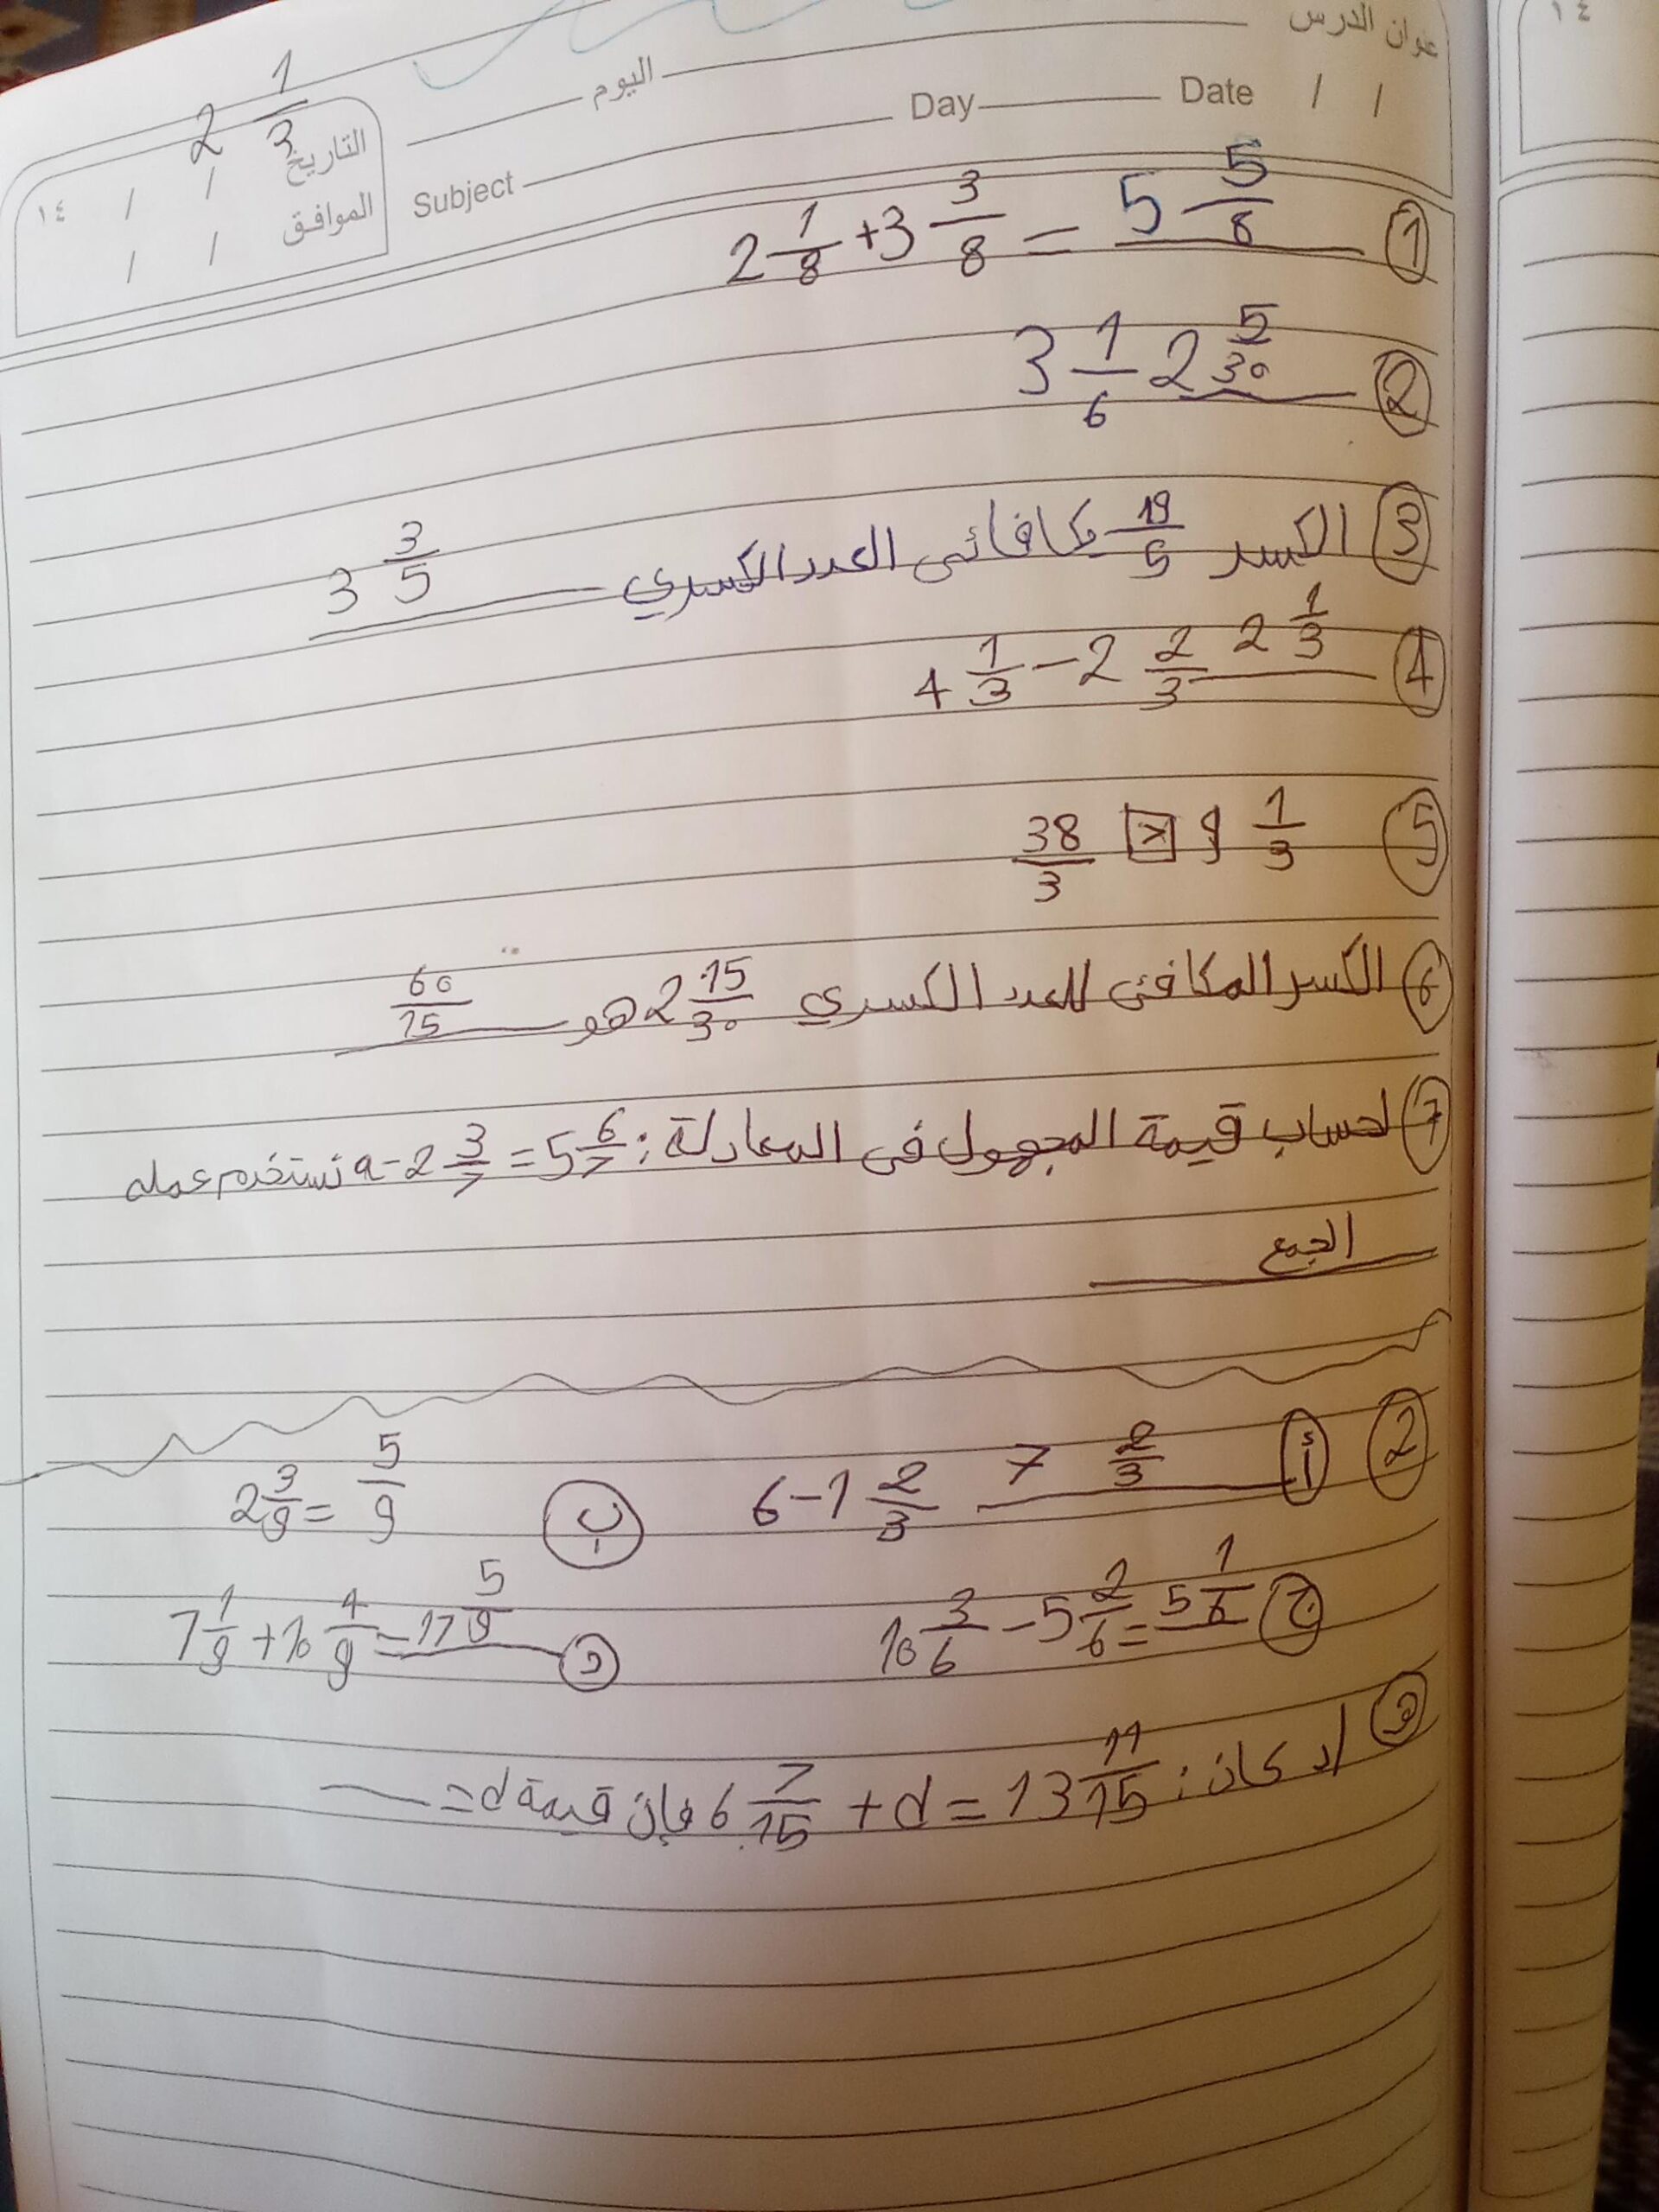 عنوان الدرس
اليوم
Day Date / /
Subject
التاريخ / / ١٤
الموافق / /
2 1/3
① 2 1/8 + 3 3/8 = 5 5/8
② 3 1/6 2 5/30
③ الكسر 19/5 يكافائى العدد الكسري 3 3/5
④ 4 1/3 - 2 2/3 2 1/3
⑤ 38/3 > 9 1/3
⑥ الكسر المكافئ للعدد الكسري 2 15/30 هو 60/15
⑦ لحساب قيمة المجهول فى المعادلة: a - 2 3/7 = 5 6/7 نستخدم عمله
الجمع
② أ 6 - 1 2/3 7 2/3
ب 2 3/9 = 5/9
ج 10 3/6 - 5 2/6 = 5 1/6
د 7 1/9 + 10 4/9 = 17 5/9
ه اد كان: 6 7/15 + d = 13 11/15 فإن قيمة d =
١٤